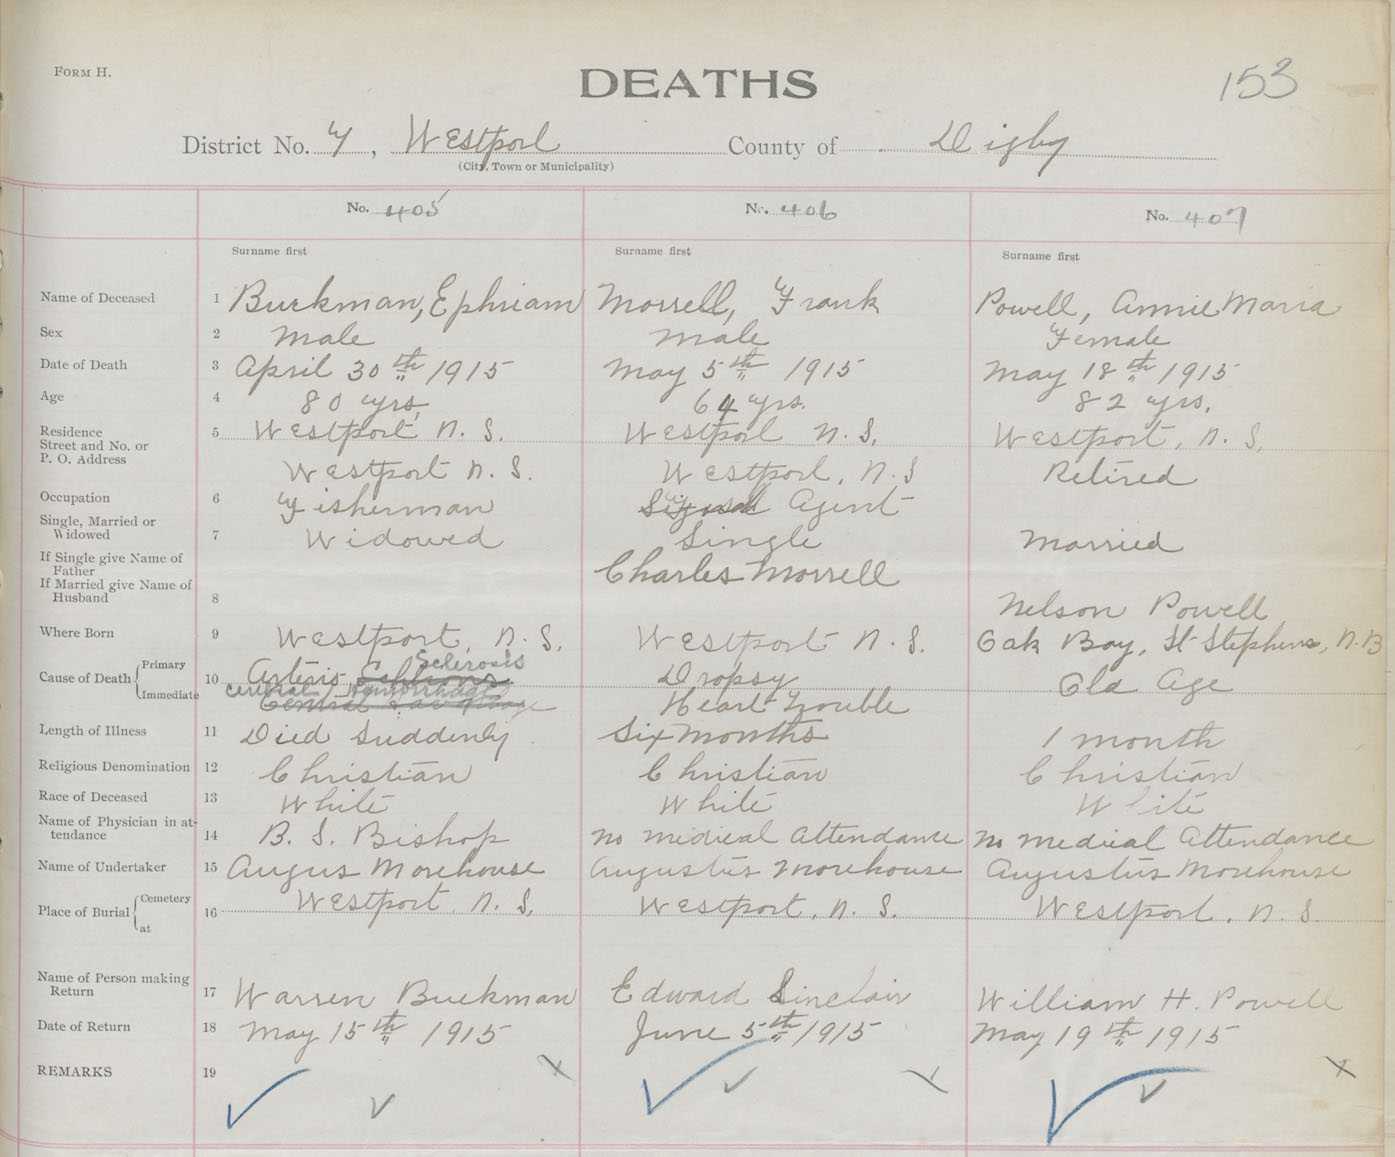 FORM H.
DEATHS
153
District No. 7, Westport County of Digby
(City, Town or Municipality)
No. 405 No. 406 No. 407
Surname first Surname first Surname first
Name of Deceased 1 Buckman, Ephriam Morrell, Frank Powell, Annie Maria
Sex 2 Male Male Female
Date of Death 3 April 30th 1915 May 5th 1915 May 18th 1915
Age 4 80 yrs. 64 yrs. 82 yrs.
Residence 5 Westport N. S. Westport N. S. Westport, N. S.
Street and No. or
P. O. Address Westport N. S. Westport, N. S Retired
Occupation 6 Fisherman Agent
Single, Married or
Widowed 7 Widowed Single Married
If Single give Name of
Father Charles Morrell
If Married give Name of
Husband 8 Nelson Powell
Where Born 9 Westport, N. S. Westport N. S. Oak Bay, St Stephens, N.B
Cause of Death Primary 10 Arterio Sclerosis Dropsy Old Age
Immediate Cerebral Hemorrhage Heart Trouble
Length of Illness 11 Died Suddenly Six Months 1 month
Religious Denomination 12 Christian Christian Christian
Race of Deceased 13 White White White
Name of Physician in at-
tendance 14 B. S. Bishop No medical Attendance No medical Attendance
Name of Undertaker 15 Augus Morehouse Augustus Morehouse Augustus Morehouse
Place of Burial Cemetery at 16 Westport, N. S. Westport, N. S. Westport, N. S.
Name of Person making
Return 17 Warren Buckman Edward Sinclair William H. Powell
Date of Return 18 May 15th 1915 June 5th 1915 May 19th 1915
REMARKS 19